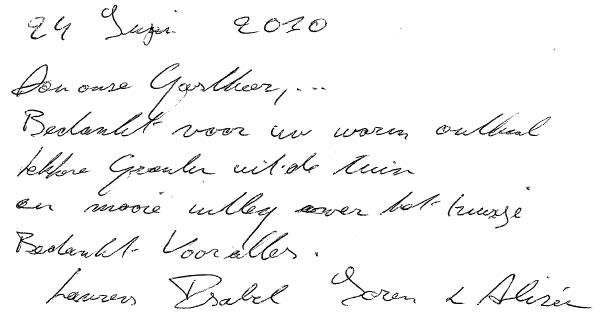 24 Juni 2010
Aan onze Gastheer,...
Bedankt voor uw warm onthaal
lekkere Groenten uit de tuin
en mooie uitleg over het huisje
Bedankt voor alles.
Laurens Isabel Joren & Alizée